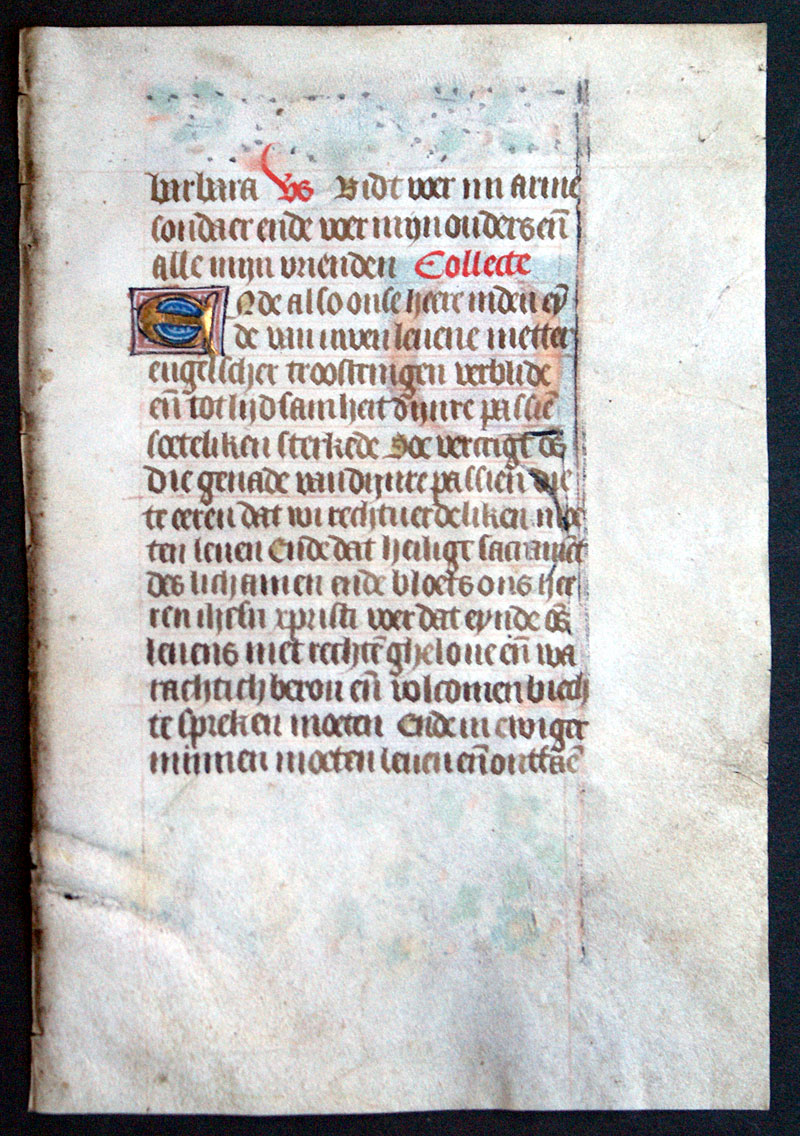 barbara vs Bidt voer mi arme
sondaer ende voer mijn ouders en̄
alle mijn vrienden Collecte
Ende also onse heere inden ey
de van uwen leuene metter
engelscher troostingen verblide
en̄ tot lijdsamheit dijnre passiē
soeteliken sterkede Soe vercrigt ōs
die genade van dijnre passien die
te eeren dat wi rechtuerdeliken moe
ten leuen Ende dat heilige sacramēt
des lichamen ende bloets ons hee
ren ihesu xpristi voer dat eynde ōs
leuens met rechtē gheloue en̄ wa
rachtich berou en̄ volcomen biech
te spreken moeten Ende in ewiger
minnen moeten leuen en̄ ontfaē